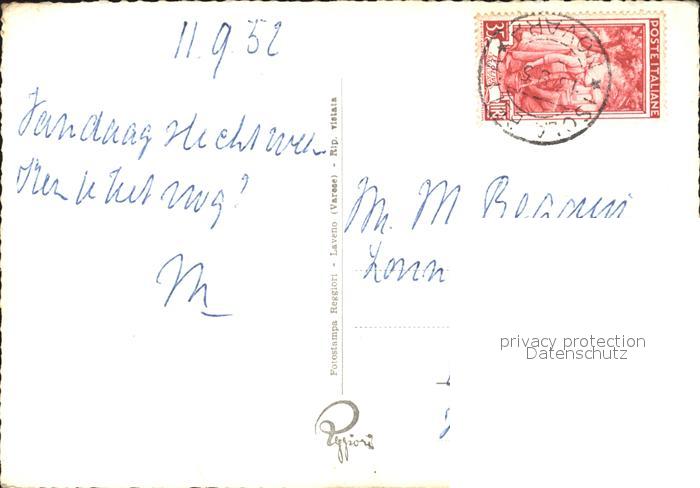 11.9.52
Vandaag slecht weer
Ken je het nog?
M
Fotostampa Reggiori - Laveno (Varese) - Rip. vietata
Reggiori
POSTE ITALIANE
ISOLA
NOVARA
Mr. M
privacy protection
Datenschutz